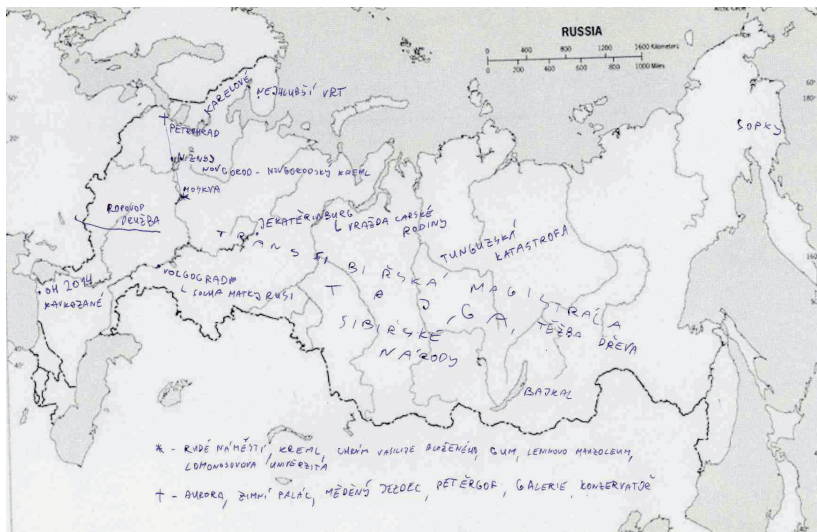 RUSSIA
0 400 800 1200 1600 Kilometers
0 200 400 600 800 1000 Miles
Arctic Circle
50°
60°
180°
20°
KARELOVÉ
NEJHLUBŠÍ VRT
SOPKY
PETROHRAD
NIŽNIJ
NOVGOROD - NOVGORODSKÝ KREML
MOSKVA
ROPOVOD
DRUŽBA
JEKATĚRINBURG
VRAŽDA CARSKÉ
RODINY
TUNGUZSKÁ
KATASTROFA
TRANSSIBIŘSKÁ MAGISTRÁLA
VOLGOGRAD
SOCHA MATKY RUSI
OH 2014
KAVKAZANÉ
TAJGA, TĚŽBA DŘEVA
SIBIŘSKÉ
NÁRODY
BAJKAL
* - RUDÉ NÁMĚSTÍ, KREML, CHRÁM VASILIJE BLAŽENÉHO, GUM, LENINOVO MAUZOLEUM,
LOMONOSOVOVA UNIVERZITA
† - AURORA, ZIMNÍ PALÁC, MĚDĚNÝ JEZDEC, PETĚRGOF, GALERIE, KONZERVATOŘ